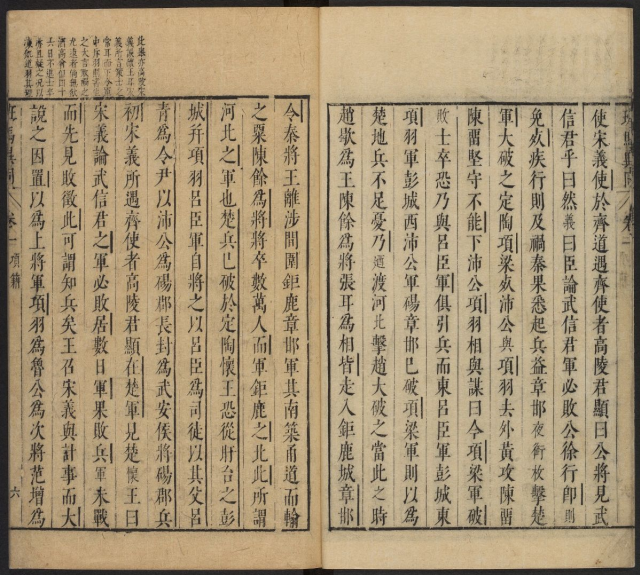 使宋義使於齊道遇齊使者高陵君顯曰公將見武
信君乎曰然義曰臣論武信君軍必敗公徐行卽則
免死疾行則及禍秦果悉起兵益章邯夜銜枚擊楚
軍大破之定陶項梁死沛公與項羽去外黃攻陳畱
陳畱堅守不能下沛公項羽相與謀曰今項梁軍破
敗士卒恐乃與呂臣軍俱引兵而東呂臣軍彭城東
項羽軍彭城西沛公軍碭章邯已破項梁軍則以爲
楚地兵不足憂乃渡河北擊趙大破之當此之時
趙歇爲王陳餘爲將張耳爲相皆走入鉅鹿城章邯
令秦將王離涉間圍鉅鹿章邯軍其南築甬道而輸
之粟陳餘爲將將卒數萬人而軍鉅鹿之北此所謂
河北之軍也楚兵已破於定陶懷王恐從盱台之彭
城并項羽呂臣軍自將之以呂臣爲司徒以其父呂
青爲令尹以沛公爲碭郡長封爲武安侯將碭郡兵
初宋義所遇齊使者高陵君顯在楚軍見楚懷王曰
宋義論武信君之軍必敗居數日軍果敗兵未戰
而先見敗徵此可謂知兵矣王召宋義與計事而大
說之因置以爲上將軍項羽爲魯公爲次將范增爲
班馬異同 卷一 項籍 六